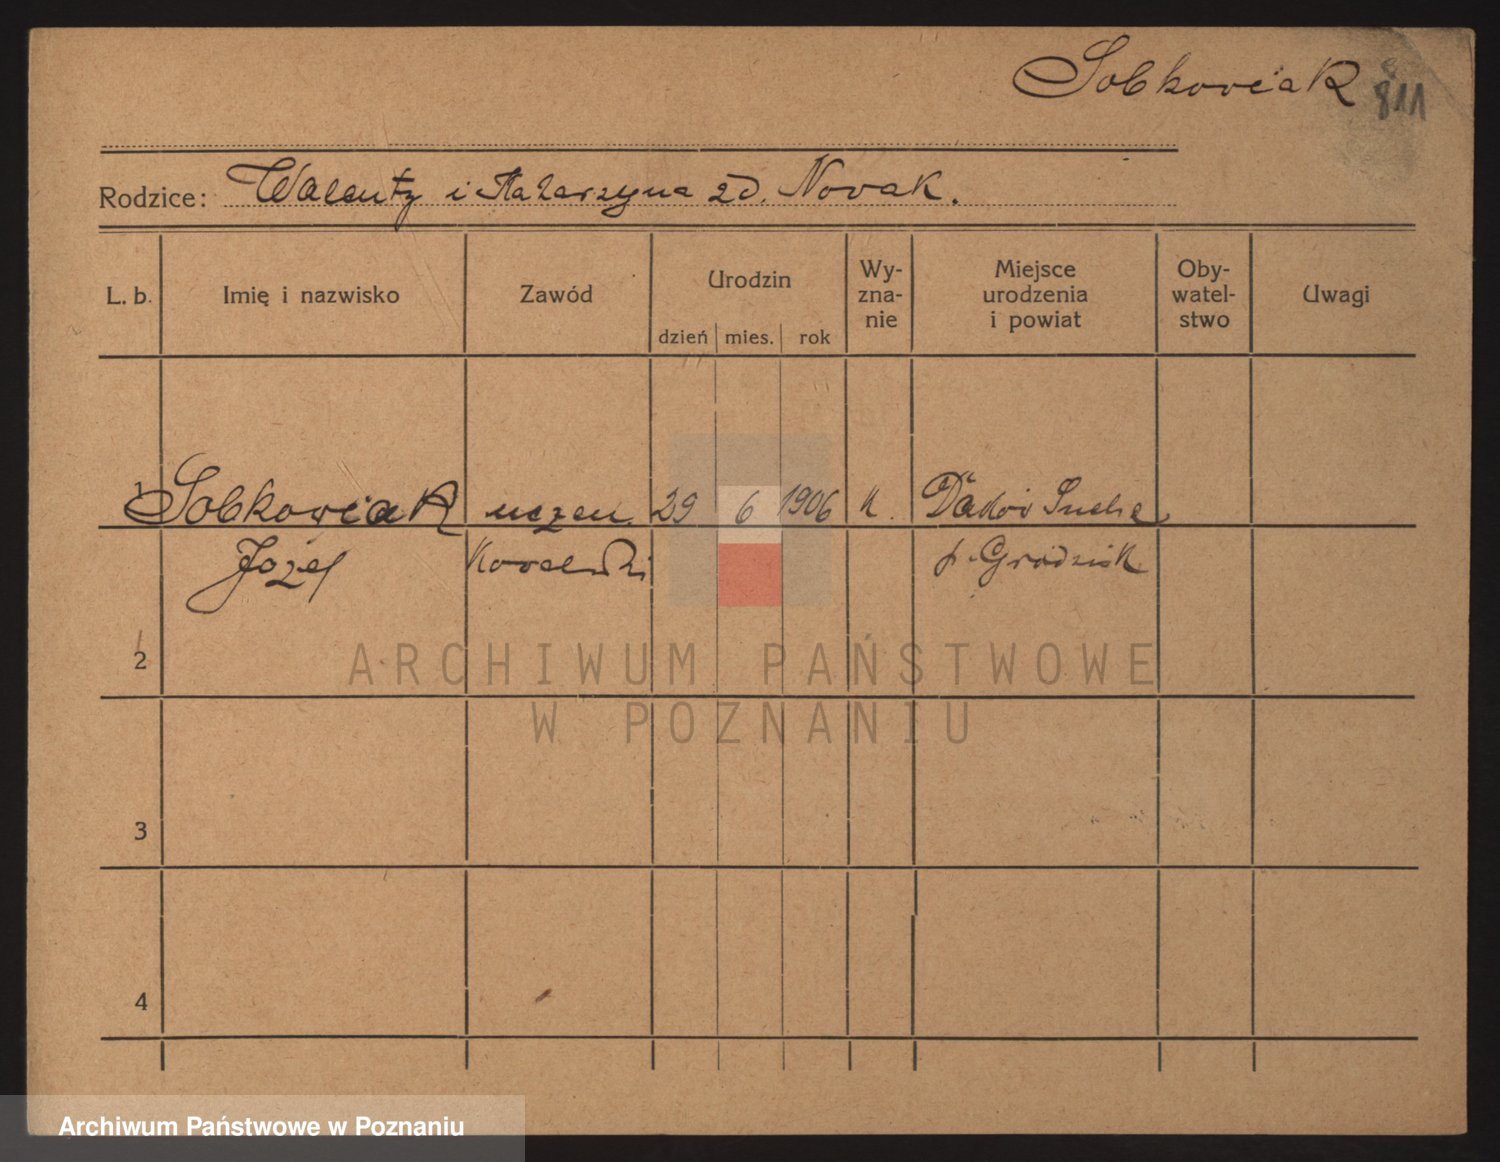 Sobkowiak 811
Rodzice: Walenty i Katarzyna zd. Nowak.
L. b. Imię i nazwisko Zawód Urodzin Wy-zna-nie Miejsce urodzenia i powiat Oby-watel-stwo Uwagi
dzień mies. rok
1 Sobkowiak uczeń. 29 6 1906 k. Dakow Suche
Józef Kowalski p. Grodzisk
2
ARCHIWUM PAŃSTWOWE
W POZNANIU
3
4
Archiwum Państwowe w Poznaniu